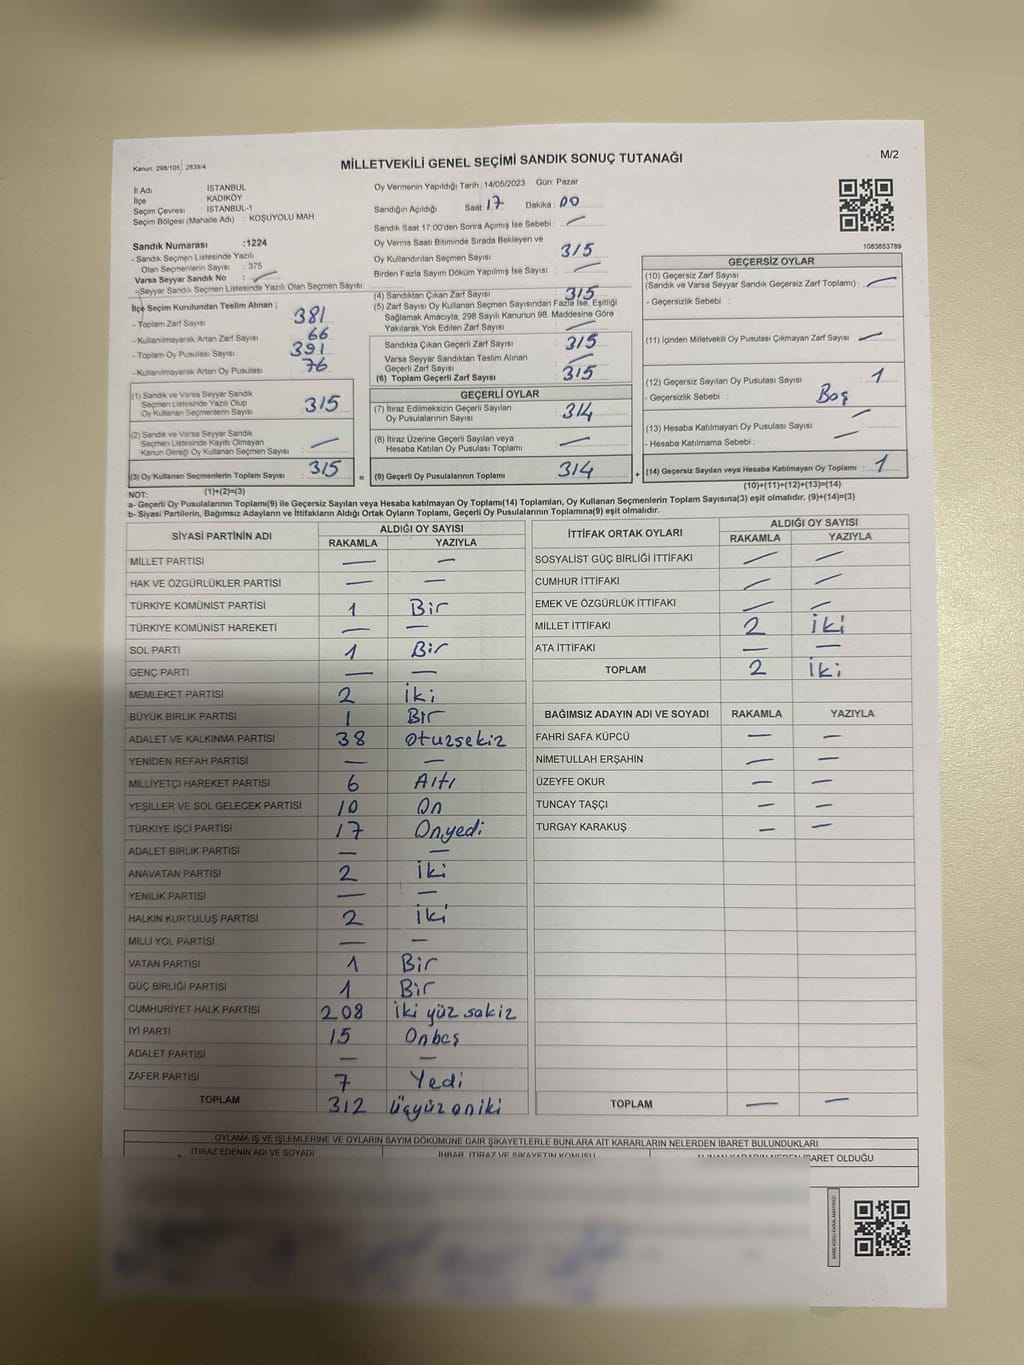 Kanun, 298/105, 2839/4
MİLLETVEKİLİ GENEL SEÇİMİ SANDIK SONUÇ TUTANAĞI
M/2
İl Adı : İSTANBUL
İlçe : KADIKÖY
Seçim Çevresi : İSTANBUL-1
Seçim Bölgesi (Mahalle Adı) : KOŞUYOLU MAH.
Sandık Numarası : 1224
- Sandık Seçmen Listesinde Yazılı
Olan Seçmenlerin Sayısı : 375
Varsa Seyyar Sandık No : —
- Seyyar Sandık Seçmen Listesinde Yazılı Olan Seçmen Sayısı :
İlçe Seçim Kurulundan Teslim Alınan :
- Toplam Zarf Sayısı 381
- Kullanılmayarak Artan Zarf Sayısı 66
- Toplam Oy Pusulası Sayısı 391
- Kullanılmayarak Artan Oy Pusulası 76
(1) Sandık ve Varsa Seyyar Sandık
Seçmen Listesinde Yazılı Olup
Oy Kullanan Seçmenlerin Sayısı 315
(2) Sandık ve Varsa Seyyar Sandık
Seçmen Listesinde Kayıtlı Olmayan
Kanun Gereği Oy Kullanan Seçmen Sayısı —
(3) Oy Kullanan Seçmenlerin Toplam Sayısı 315 =
(1)+(2)=(3)
Oy Vermenin Yapıldığı Tarih: 14/05/2023 Gün: Pazar
Sandığın Açıldığı Saat: 17 Dakika: 00
Sandık Saat 17:00'den Sonra Açılmış İse Sebebi : —
Oy Verme Saati Bitiminde Sırada Bekleyen ve
Oy Kullandırılan Seçmen Sayısı 315
Birden Fazla Sayım Döküm Yapılmış İse Sayısı —
(4) Sandıktan Çıkan Zarf Sayısı 315
(5) Zarf Sayısı Oy Kullanan Seçmen Sayısından Fazla İse, Eşitliği
Sağlamak Amacıyla, 298 Sayılı Kanunun 98. Maddesine Göre
Yakılarak Yok Edilen Zarf Sayısı —
Sandıkta Çıkan Geçerli Zarf Sayısı 315
Varsa Seyyar Sandıktan Teslim Alınan
Geçerli Zarf Sayısı —
(6) Toplam Geçerli Zarf Sayısı 315
GEÇERLİ OYLAR
(7) İtiraz Edilmeksizin Geçerli Sayılan
Oy Pusulalarının Sayısı 314
(8) İtiraz Üzerine Geçerli Sayılan veya
Hesaba Katılan Oy Pusulaları Toplamı —
(9) Geçerli Oy Pusulalarının Toplamı 314 +
1083653789
GEÇERSİZ OYLAR
(10) Geçersiz Zarf Sayısı
(Sandık ve Varsa Seyyar Sandık Geçersiz Zarf Toplamı) : —
- Geçersizlik Sebebi :
(11) İçinden Milletvekili Oy Pusulası Çıkmayan Zarf Sayısı —
(12) Geçersiz Sayılan Oy Pusulası Sayısı 1
- Geçersizlik Sebebi : Boş
(13) Hesaba Katılmayan Oy Pusulası Sayısı —
- Hesaba Katılmama Sebebi : —
(14) Geçersiz Sayılan veya Hesaba Katılmayan Oy Toplamı : 1
(10)+(11)+(12)+(13)=(14)
NOT:
a- Geçerli Oy Pusulalarının Toplamı(9) ile Geçersiz Sayılan veya Hesaba katılmayan Oy Toplamı(14) Toplamları, Oy Kullanan Seçmenlerin Toplam Sayısına(3) eşit olmalıdır. (9)+(14)=(3)
b- Siyasi Partilerin, Bağımsız Adayların ve İttifakların Aldığı Ortak Oyların Toplamı, Geçerli Oy Pusulalarının Toplamına(9) eşit olmalıdır.
SİYASİ PARTİNİN ADI ALDIĞI OY SAYISI
RAKAMLA YAZIYLA
MİLLET PARTİSİ — —
HAK VE ÖZGÜRLÜKLER PARTİSİ — —
TÜRKİYE KOMÜNİST PARTİSİ 1 Bir
TÜRKİYE KOMÜNİST HAREKETİ — —
SOL PARTİ 1 Bir
GENÇ PARTİ — —
MEMLEKET PARTİSİ 2 İki
BÜYÜK BİRLİK PARTİSİ 1 Bir
ADALET VE KALKINMA PARTİSİ 38 otuzsekiz
YENİDEN REFAH PARTİSİ — —
MİLLİYETÇİ HAREKET PARTİSİ 6 Altı
YEŞİLLER VE SOL GELECEK PARTİSİ 10 On
TÜRKİYE İŞÇİ PARTİSİ 17 Onyedi
ADALET BİRLİK PARTİSİ — —
ANAVATAN PARTİSİ 2 İki
YENİLİK PARTİSİ — —
HALKIN KURTULUŞ PARTİSİ 2 İki
MİLLİ YOL PARTİSİ — —
VATAN PARTİSİ 1 Bir
GÜÇ BİRLİĞİ PARTİSİ 1 Bir
CUMHURİYET HALK PARTİSİ 208 iki yüz sekiz
İYİ PARTİ 15 Onbeş
ADALET PARTİSİ — —
ZAFER PARTİSİ 7 Yedi
TOPLAM 312 Üçyüzoniki
İTTİFAK ORTAK OYLARI ALDIĞI OY SAYISI
RAKAMLA YAZIYLA
SOSYALİST GÜÇ BİRLİĞİ İTTİFAKI — —
CUMHUR İTTİFAKI — —
EMEK VE ÖZGÜRLÜK İTTİFAKI — —
MİLLET İTTİFAKI 2 İki
ATA İTTİFAKI — —
TOPLAM 2 İki
BAĞIMSIZ ADAYIN ADI VE SOYADI RAKAMLA YAZIYLA
FAHRİ SAFA KÜPCÜ — —
NİMETULLAH ERŞAHİN — —
ÜZEYFE OKUR — —
TUNCAY TAŞÇI — —
TURGAY KARAKUŞ — —
TOPLAM — —
OYLAMA İŞ VE İŞLEMLERİNE VE OYLARIN SAYIM DÖKÜMÜNE DAİR ŞİKAYETLERLE BUNLARA AİT KARARLARIN NELERDEN İBARET BULUNDUKLARI
İTİRAZ EDENİN ADI VE SOYADI İHBAR, İTİRAZ VE ŞİKAYETİN KONUSU İBARET OLDUĞU